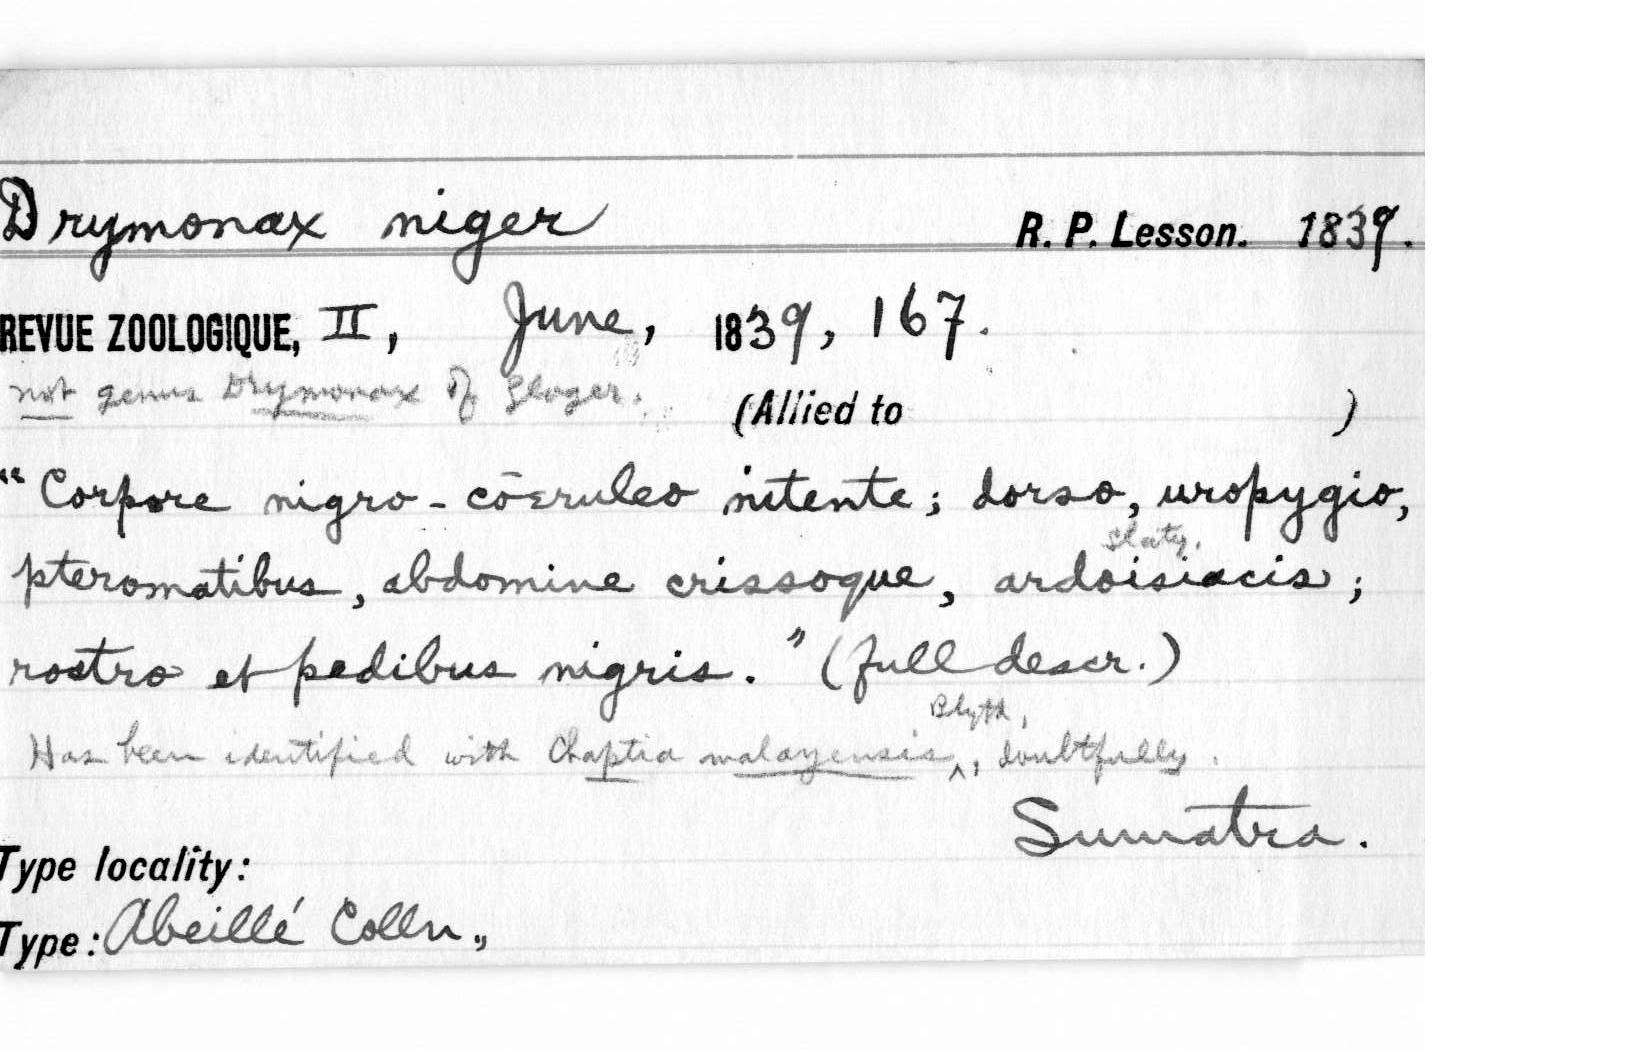 Drymonax niger R. P. Lesson. 1839.
REVUE ZOOLOGIQUE, II, June, 1839, 167.
not genus Drymonax of Gloger.
(Allied to )
“Corpore nigro-cœruleo nitente; dorso, uropygio,
slaty.
pteromatibus, abdomine crissoque, ardoisiacis;
rostro et pedibus nigris.” (full descr.)
Blyth,
Has been identified with Chaptia malayensis ^, doubtfully.
Sumatra.
Type locality:
Type: Abeillé Colln.,